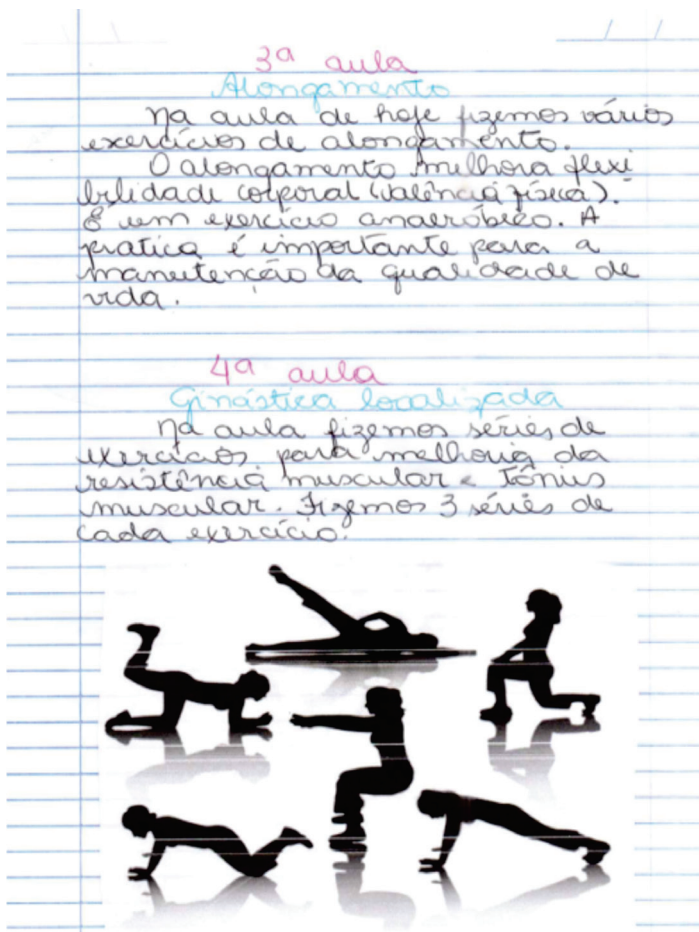 3ª aula
Alongamento
Na aula de hoje fizemos vários
exercícios de alongamento.
O alongamento melhora flexi
bilidade corporal (valência física).
É um exercício anaeróbico. A
pratica é importante para a
manutenção da qualidade de
vida.
4ª aula
Ginástica localizada
Na aula fizemos séries de
exercícios para melhoria da
resistência muscular e tônus
muscular. Fizemos 3 séries de
cada exercício.